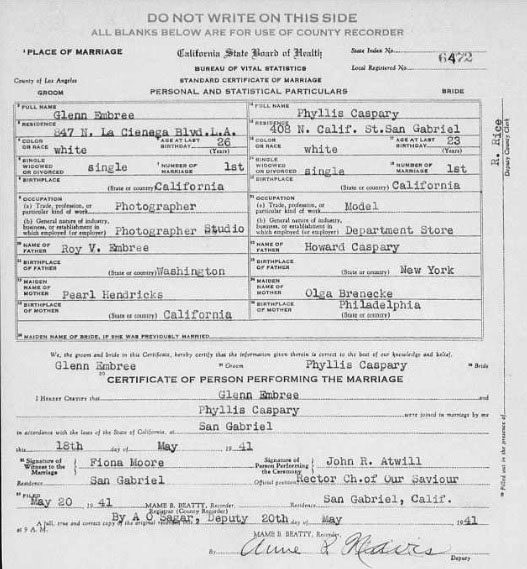 DO NOT WRITE ON THIS SIDE
ALL BLANKS BELOW ARE FOR USE OF COUNTY RECORDER
PLACE OF MARRIAGE
California State Board of Health
State Index No.
BUREAU OF VITAL STATISTICS
Local Registered No. 6472
County of Los Angeles
STANDARD CERTIFICATE OF MARRIAGE
GROOM PERSONAL AND STATISTICAL PARTICULARS BRIDE
FULL NAME Glenn Embree FULL NAME Phyllis Caspary
RESIDENCE 847 N. La Cienega Blvd.L.A. RESIDENCE 408 N. Calif. St.San Gabriel
COLOR OR RACE white AGE AT LAST BIRTHDAY 26 (Years) COLOR OR RACE white AGE AT LAST BIRTHDAY 23 (Years)
SINGLE WIDOWED OR DIVORCED single NUMBER OF MARRIAGE 1st SINGLE WIDOWED OR DIVORCED single NUMBER OF MARRIAGE 1st
BIRTHPLACE (State or country) California BIRTHPLACE (State or country) California
OCCUPATION OCCUPATION
(a) Trade, profession, or particular kind of work Photographer (a) Trade, profession, or particular kind of work Model
(b) General nature of industry, business, or establishment in which employed (or employer) Photographer Studio (b) General nature of industry, business, or establishment in which employed (or employer) Department Store
NAME OF FATHER Roy V. Embree NAME OF FATHER Howard Caspary
BIRTHPLACE OF FATHER (State or country) Washington BIRTHPLACE OF FATHER (State or country) New York
MAIDEN NAME OF MOTHER Pearl Hendricks MAIDEN NAME OF MOTHER Olga Brenecke
BIRTHPLACE OF MOTHER (State or country) California BIRTHPLACE OF MOTHER (State or country) Philadelphia
MAIDEN NAME OF BRIDE, IF SHE WAS PREVIOUSLY MARRIED
We, the groom and bride in this Certificate, hereby certify that the information given therein is correct to the best of our knowledge and belief.
Glenn Embree Groom Phyllis Caspary Bride
CERTIFICATE OF PERSON PERFORMING THE MARRIAGE
I HEREBY CERTIFY that Glenn Embree and
Phyllis Caspary were joined in marriage by me
in accordance with the laws of the State of California, at San Gabriel
this 18th day of May 1941
Signature of Witness to the Marriage Fiona Moore Signature of Person Performing the Ceremony John R. Atwill
Residence San Gabriel Official position Rector Ch.of Our Saviour
FILED May 20 1941 MAME B. BEATTY, Recorder Residence San Gabriel, Calif.
Registrar (County Recorder)
By A O Sagar, Deputy
A full, true and correct copy of the original recorded this 20th day of May 1941
at 9 A.M. MAME B. BEATTY, Recorder,
By Deputy
R. Rice
Deputy County Clerk
Filled out in the presence of